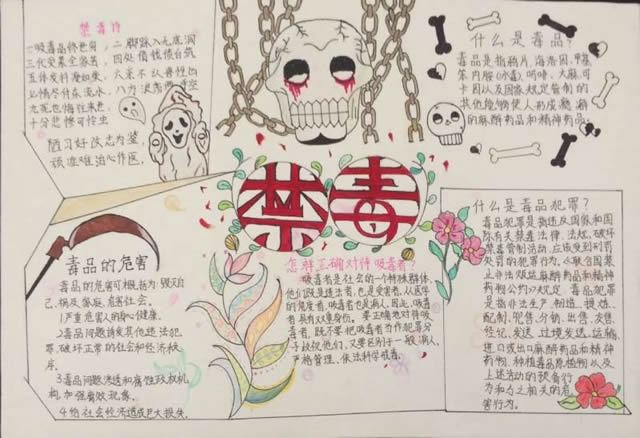 禁毒诗
一吸毒品终世穷，二脚踩入无底洞
三代受累全家苦，四处借钱债台筑
五体发抖
七情尽付东流水，
九死也悔往来意，
十分悲惨可怜虫
陋习好改志为鉴，
该谁难治心作医。
什么是毒品？
毒品是指鸦片，海洛因，甲基
苯丙胺(冰毒)吗啡，大麻，可
卡因以及国家规定管制的
其他能够使人形成瘾癖
的麻醉药品和精神药品。
禁毒
毒品的危害
毒品的危害可概括为：毁灭自
己，祸及家庭，危害社会。
1严重危害人的身心健康。
2毒品问题诱发其他违法犯
罪，破坏正常的社会和经济秩
序。
3毒品问题渗透和腐蚀政权机
构，加强腐败现象。
4给社会经济造成巨大损失。
怎样正确对待吸毒者？
吸毒者是社会的一个特殊群体，
他们既是违法者，也是受害者，从医学
的角度看，吸毒者也是病人。因此，吸毒
者具有双重身份。要正确地对待吸
毒者，既不要把吸毒者当作犯罪分
子歧视他们，又要区别于一般病人，
严格管理、依法科学戒毒。
什么是毒品犯罪？
毒品犯罪是指违反国家和国
际有关禁毒法律、法规，破坏
禁毒管制活动，应该受到刑罚
处罚的犯罪行为。《联合国禁
止非法贩运麻醉药品和精神
药物公约》规定，毒品犯罪
是指非法生产、制造、提炼、
配制、兜售、分销、出售、交售、
经纪、发送、过境发送、运输、
进口或出口麻醉药品和精神
药物、种植毒品原植物以及
上述活动的预备行
为和与之相关的危
害行为。